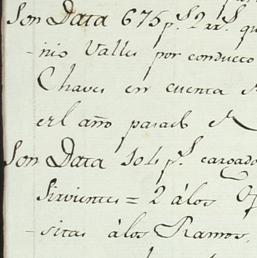 Son Data 675 p.s 2 rr.s qu
-nio Valles por conducto
Chaves en cuenta
el año pasad
Son Data 104 p.s cargado
Sirvientes = 2 à los
-sitas à los Ramos,